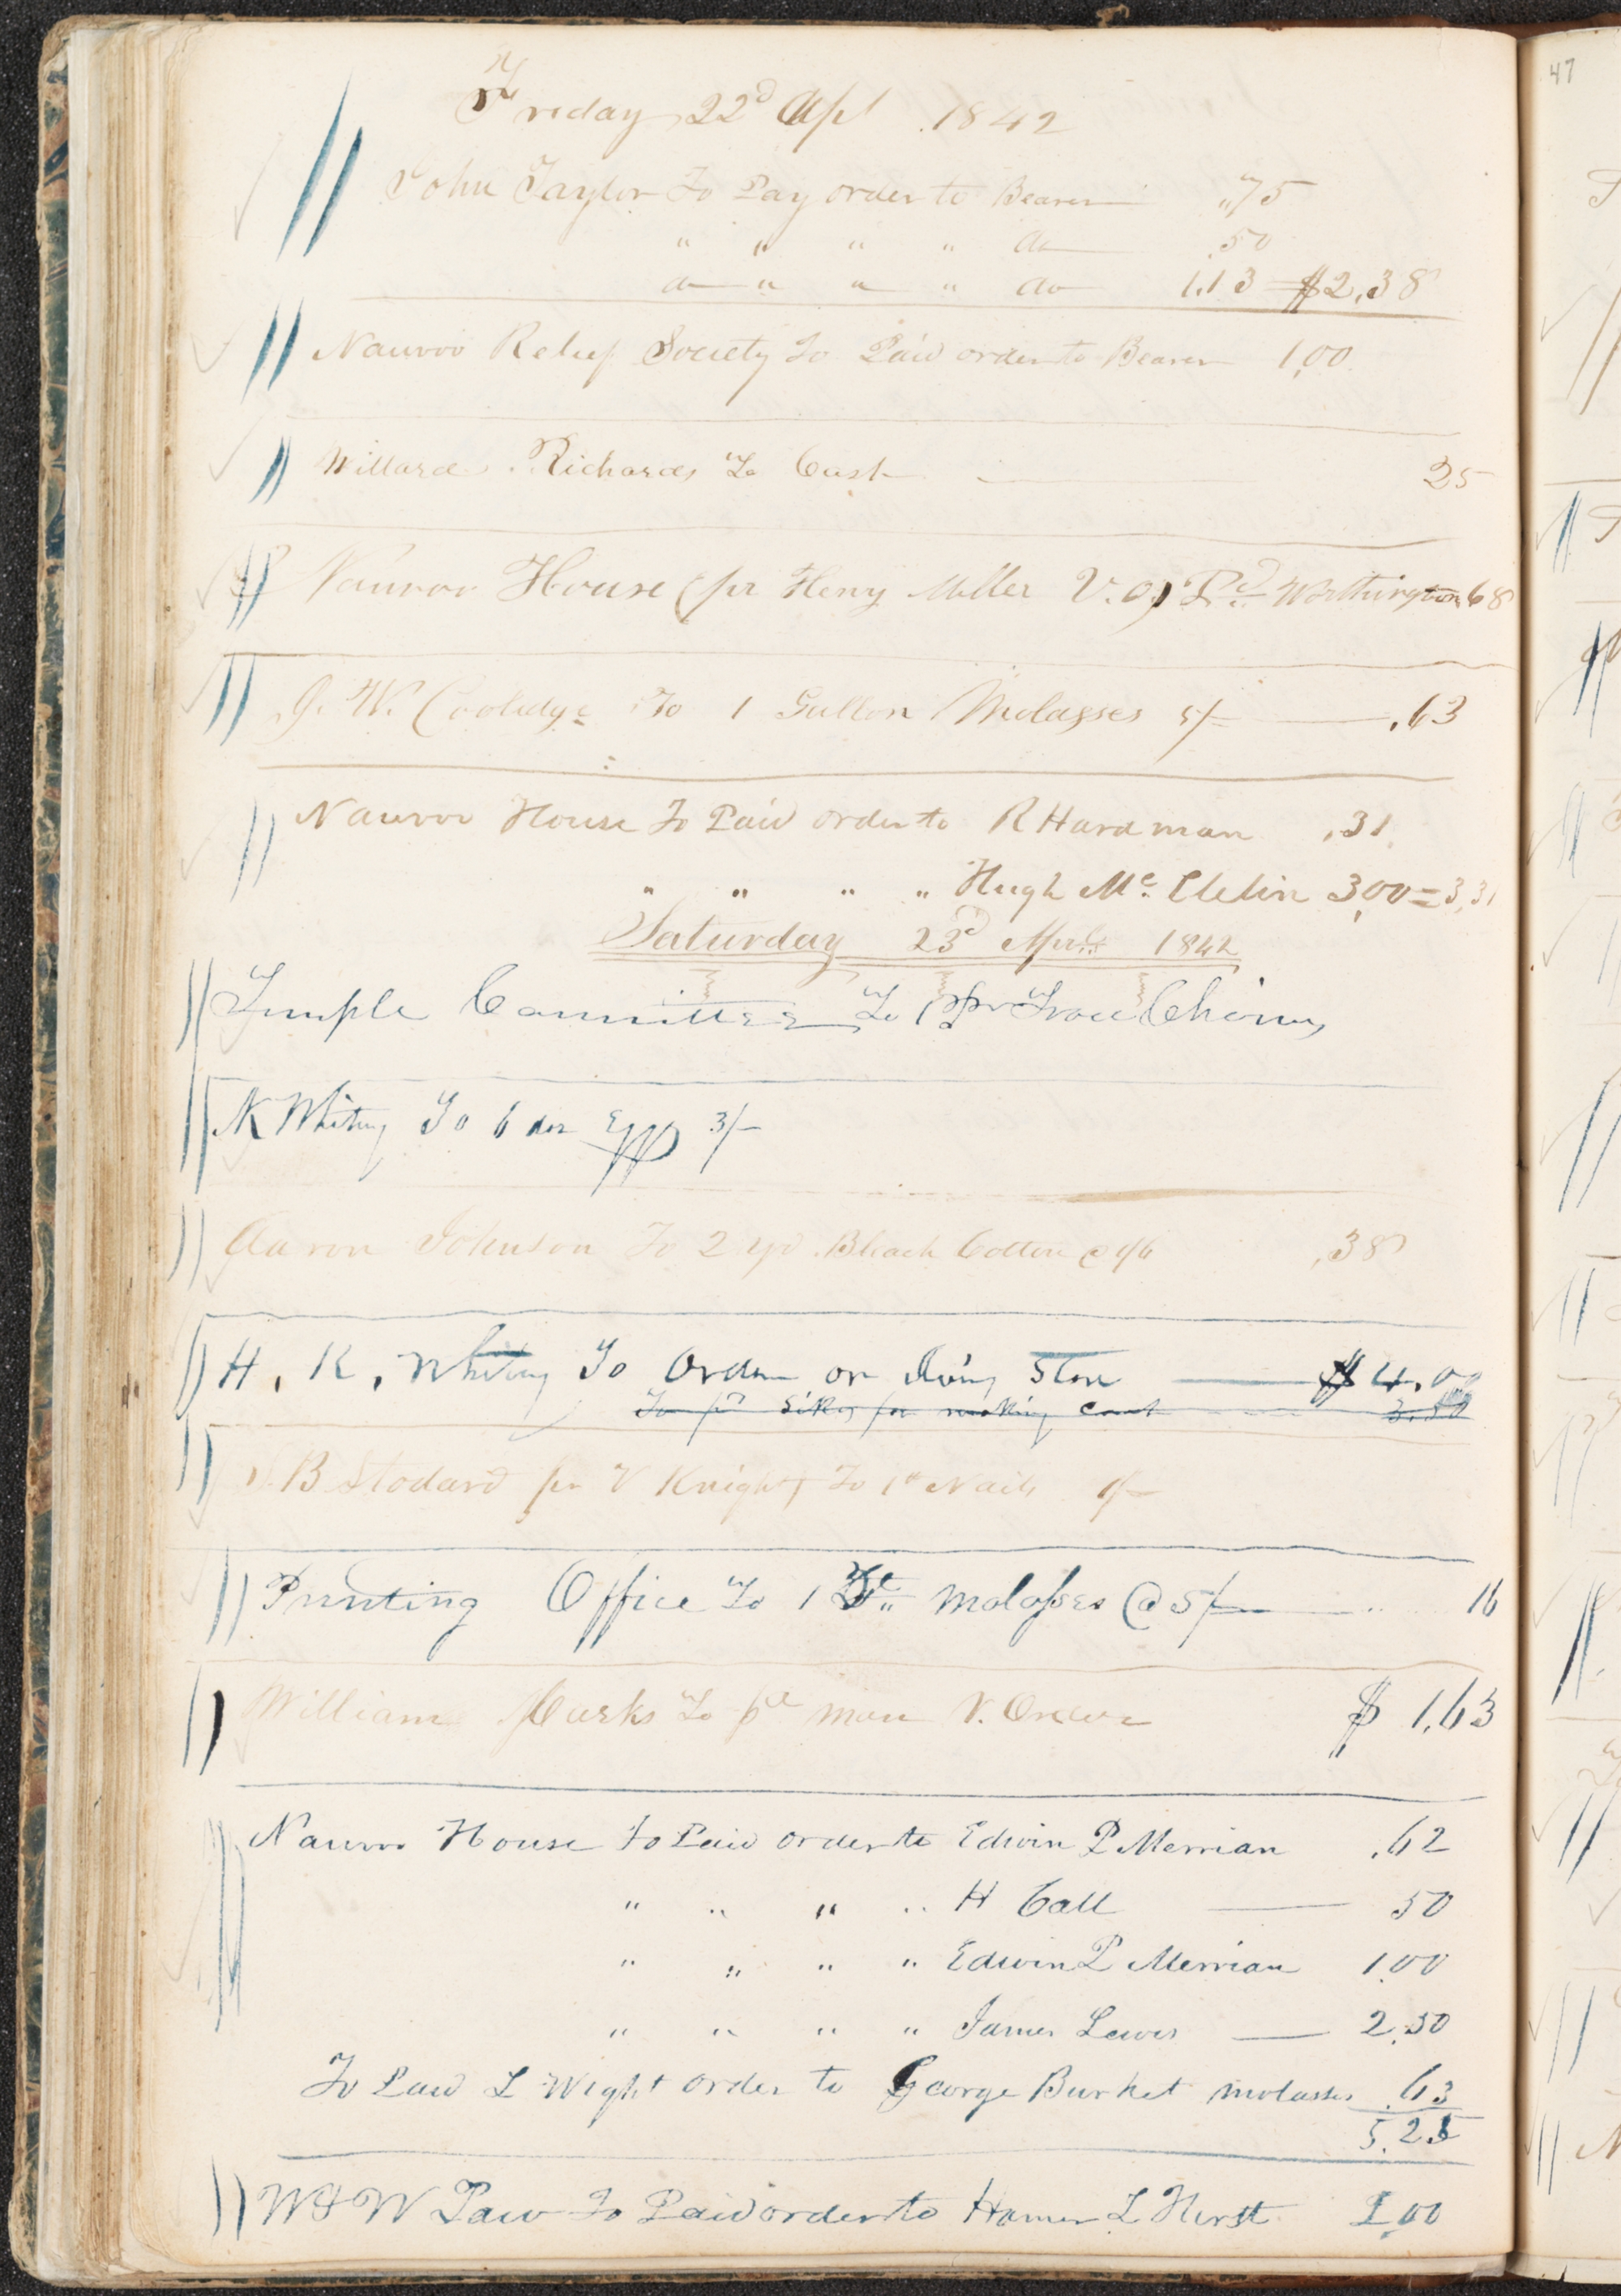 Friday 22d Apl 1842
John Taylor To Pay order to Bearer ,,75
" " " " do .50
do " " " do 1.13 $2.38
Nauvoo Relief Society To Paid order to Bearer 1,00
Willard Richards To Cash 25
Nauvoo House (pr Henry Miller V.O) Pd Worthington 68
J. W. Coolidge To 1 Gallon Molasses 5/- .63
Nauvoo House To Paid order to R Hardman .31
" " " " Hugh Mc. 3,00 = 3,31
Saturday 23d April 1842
Temple Committee To 1 pr Trace Chains
N K Whitney To 6 doz Eggs 3/-
Aaron Johnson To 2 yd Bleach Cotton @ 1/6 .38
H. K. Whitney To Order on Ivins Store $ 4.00
To pd Sikes for making coat 3.50
S. B Stodard pr V Knight To 1# Nails 1/-
Printing Office To 1 Qt. molasses @ 5/- 16
William Marks To pd man V. Order $ 1.63
Nauvoo House To Paid order to Edwin P Merrian .62
" " " " H Call 50
" " " " Edwin P Merrian 1.00
" " " " James Lewis 2.50
To Paid L Wight order to George Burket molasses .63
5.25
W & W Law To Paid order to Homer L Hirst 1.00
47